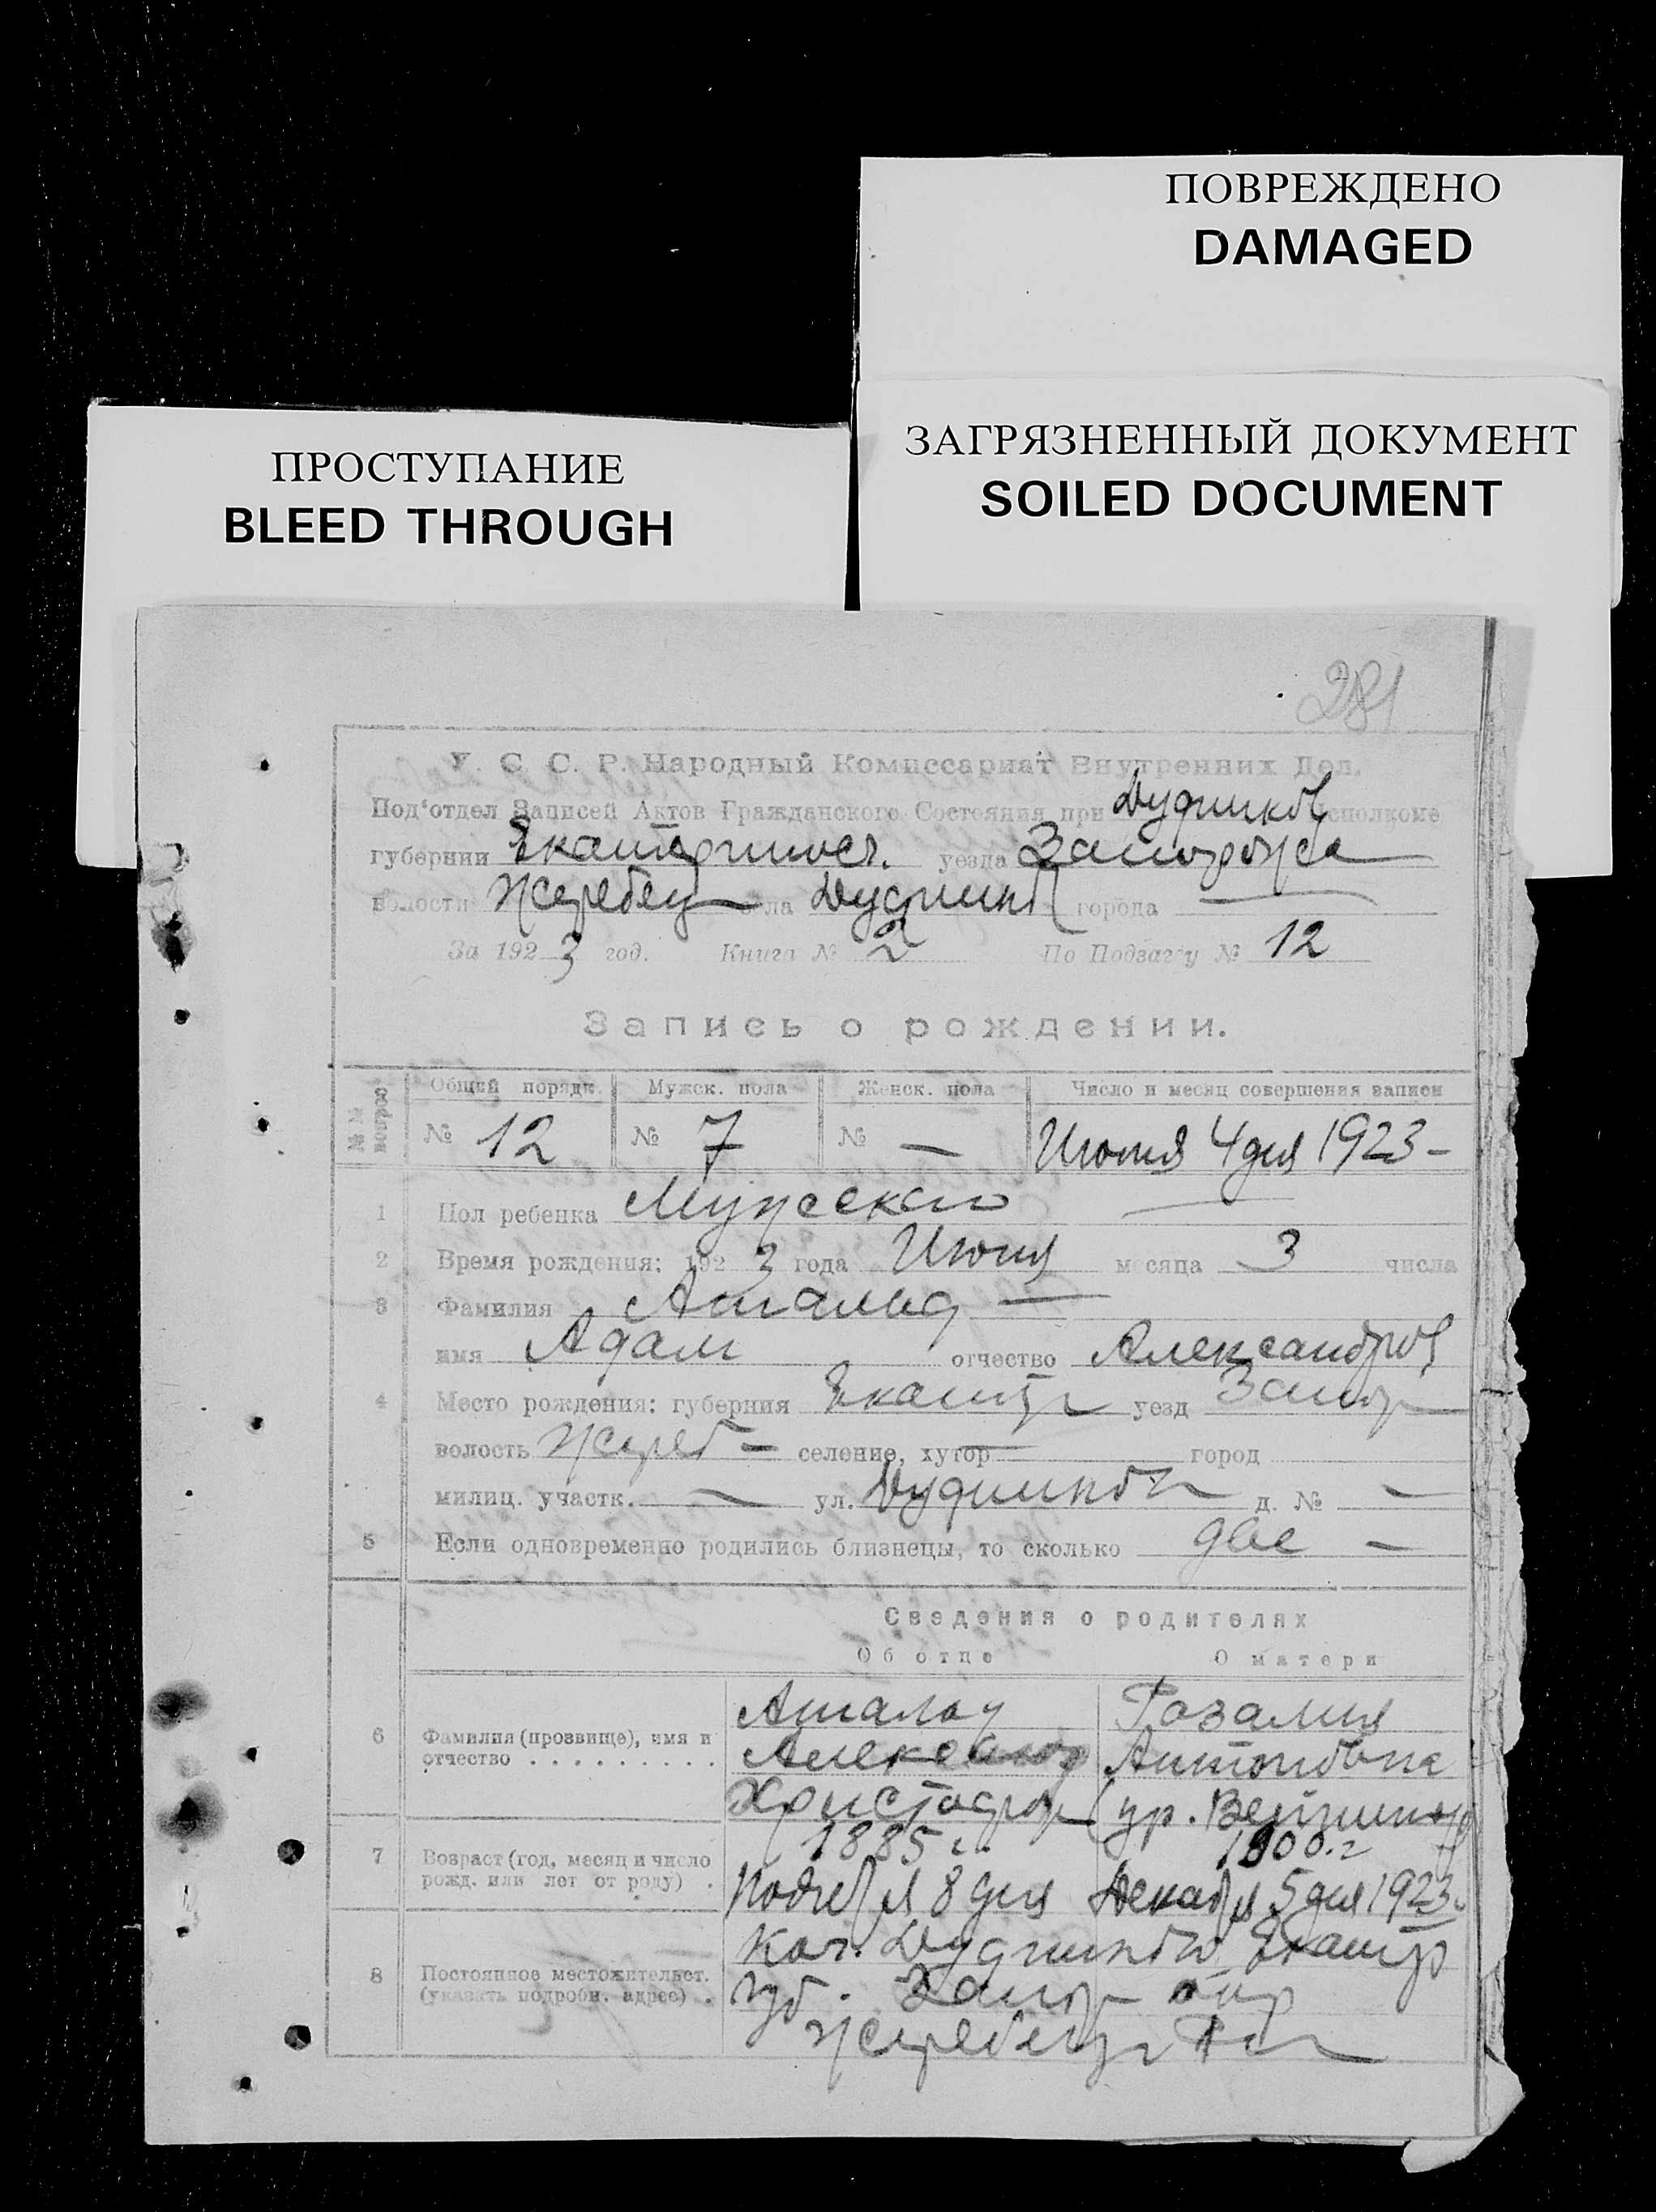 ПОВРЕЖДЕНО
DAMAGED
ЗАГРЯЗНЕННЫЙ ДОКУМЕНТ
SOILED DOCUMENT
ПРОСТУПАНИЕ
BLEED THROUGH
281
У. С. С. Р. Народный Комиссариат Внутренних Дел.
Под'отдел Записей Актов Гражданского Состояния при Дудников исполкоме
губернии Екатеринос. уезда
волости Жеребец села Дудников города —
За 1923 год. Книга № 2 По Подзагсу № 12
Запись о рождении.
№№ вопрос
Общий порядк. Мужск. пола Женск. пола Число и месяц совершения записи
№ 12 № 7 № — Июня 4 дня 1923 –
1 Пол ребенка Мужескаго —
2 Время рождения: 1923 года Июня месяца 3 числа
3 Фамилия —
имя Адам отчество Александров
4 Место рождения: губерния Екатр уезд Запор
волость Жереб – селение, хутор — город
милиц. участк. — ул. д. № —
5 Если одновременно родились близнецы, то сколько две —
Сведения о родителях
Об отце О матери
6 Фамилия (прозвище), имя и отчество . . . . . . . . . Розалия
Александр Антоновна
Христофор (ур.
7 Возраст (год, месяц и число рожд. или лет от роду) . 1885 г. 1900. г
Ноября 8 дня Декабря 5 дня 1923
8 Постоянное местожительст. (указать подробн. адрес) . Кол. Екатр
губ. Запор окр